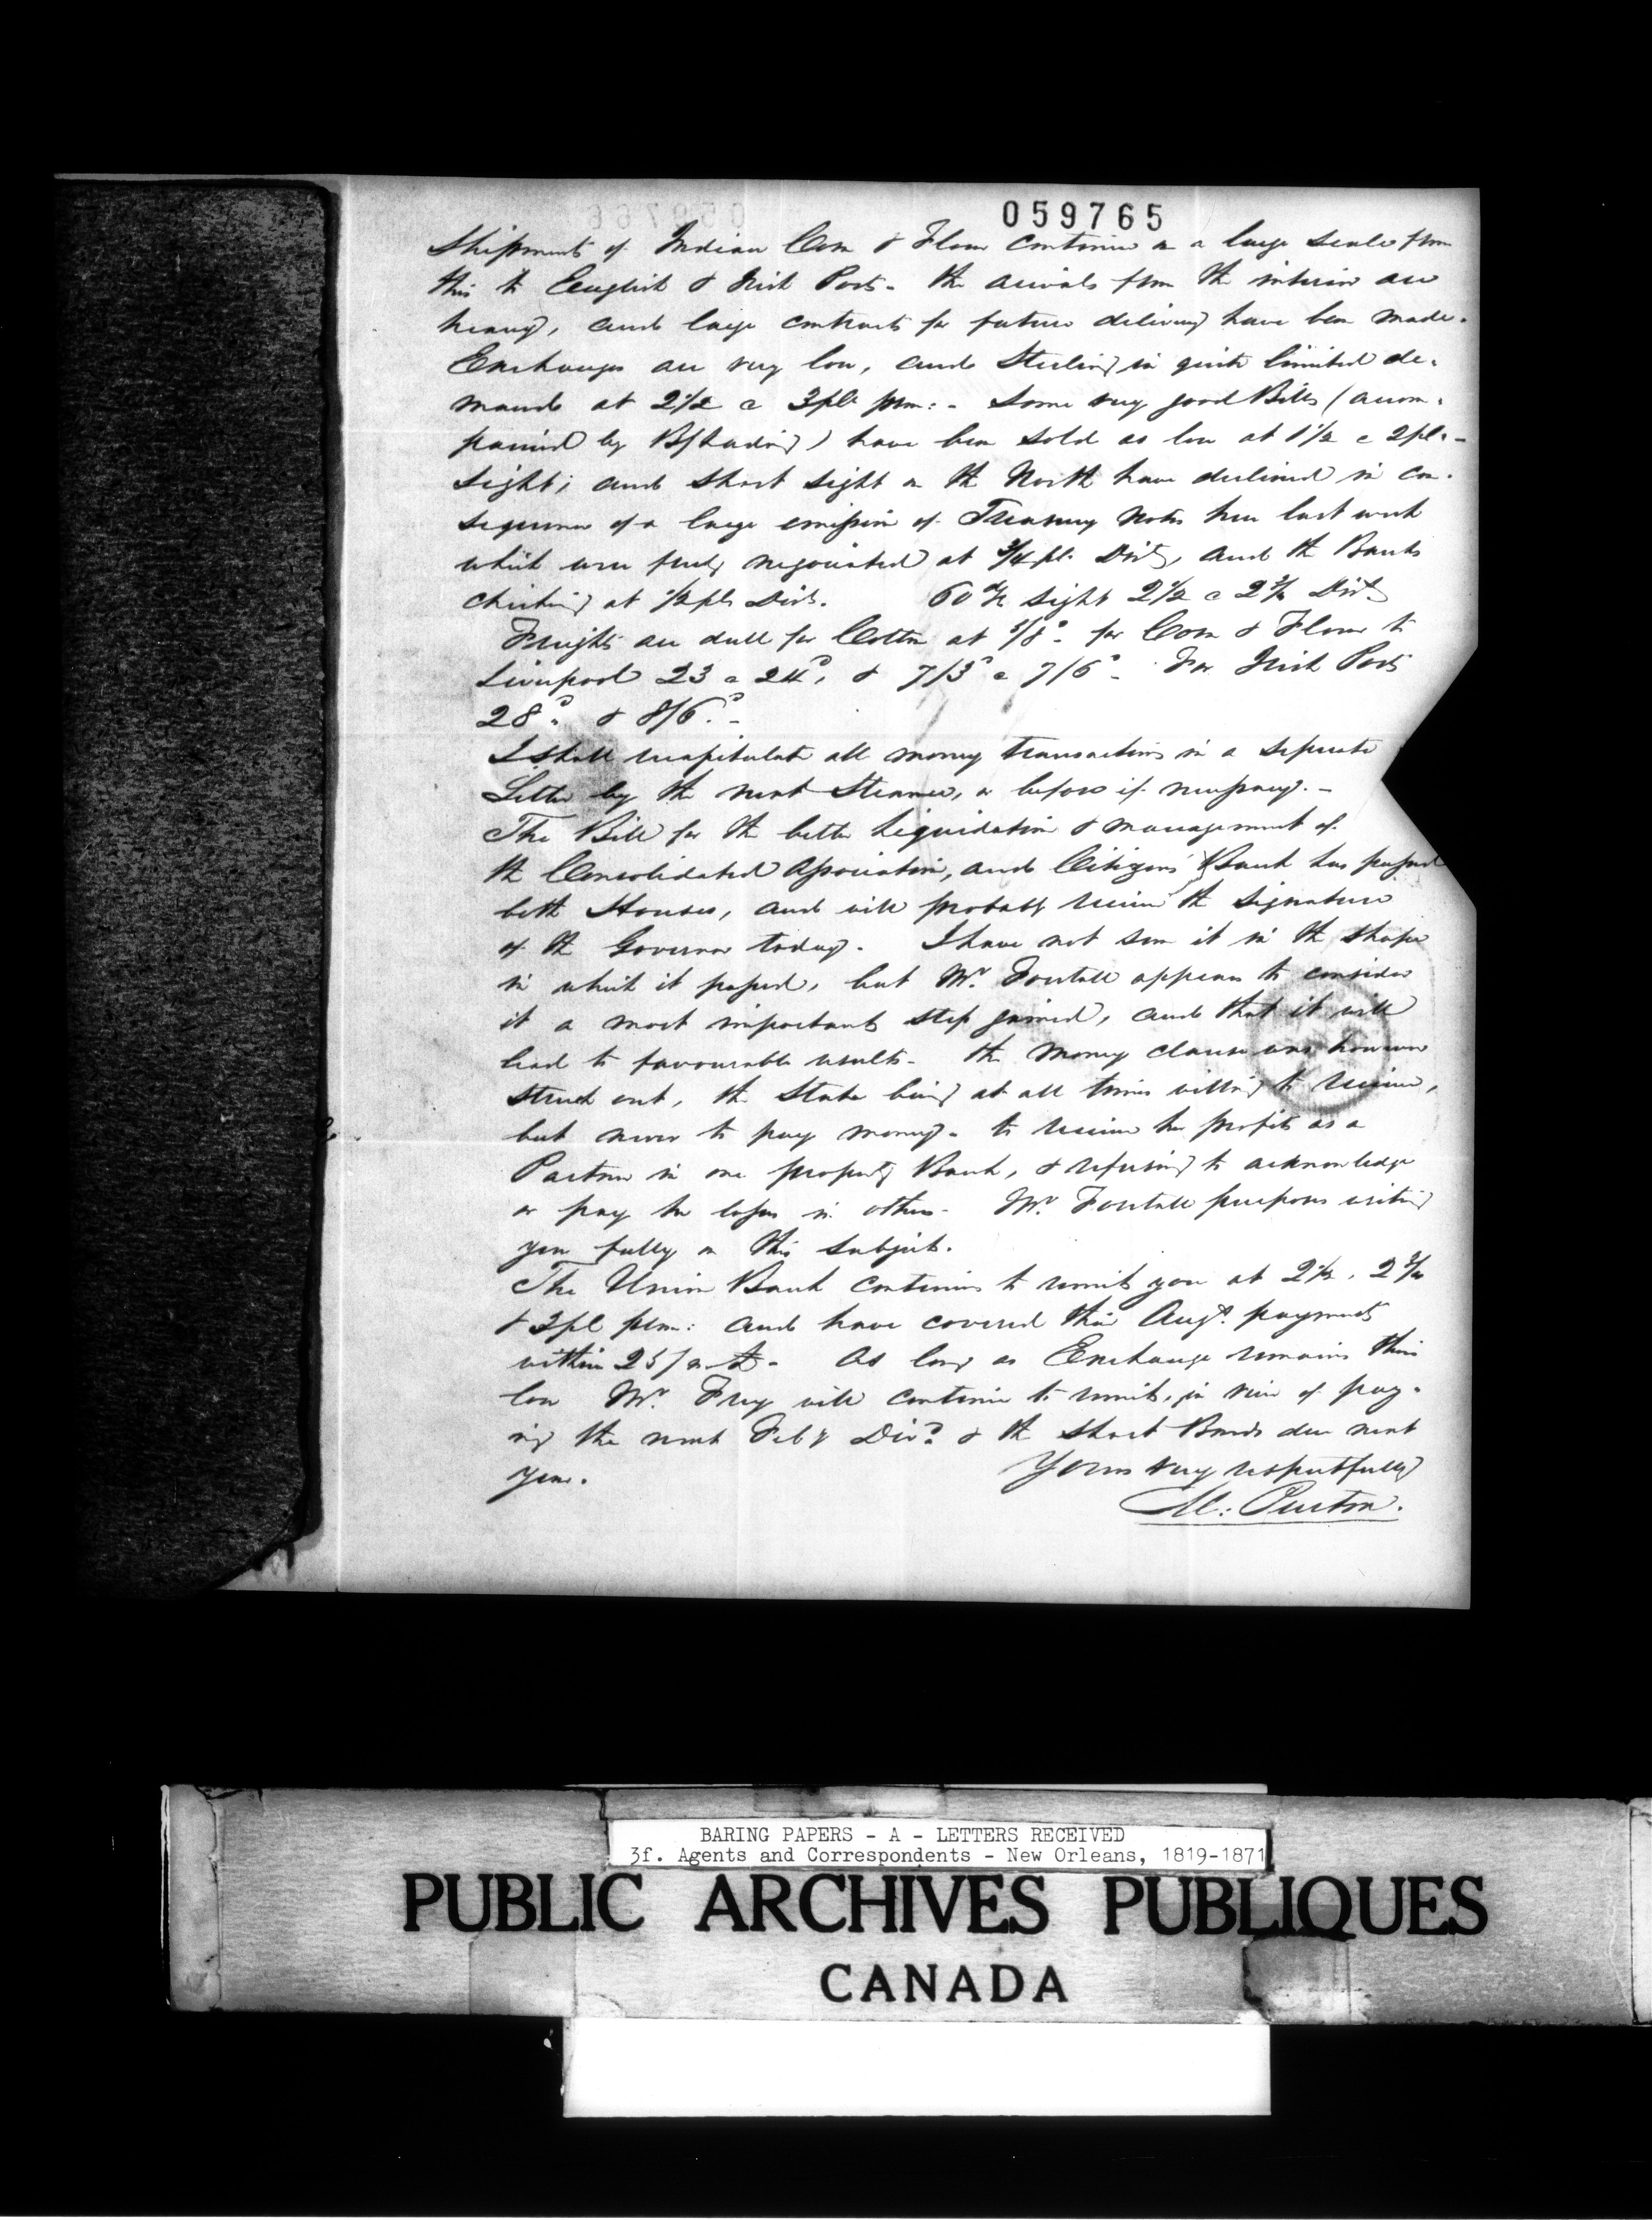 059765
Shipments of Indian Corn & Flour continue on a large scale from
this to English & Irish Ports - the arrivals from the interior are
heavy, and large contracts for future delivery have been made.
Exchanges are very low, and Sterling in quite limited de-
mand at 2½ a 3pCt prm: - Some very good Bills (accom-
panied by B/Lading) have been sold as low at 1½ a 2pCt -
Sight; and short sight on the North have declined in con-
sequence of a large emission of Treasury Notes here last week
which were freely negociated at ¾pCt Dist, and the Banks
checking at ½pCt Dist. 60 d/s sight 2½ a 2¾ Dist
Freights are dull for Cotton at 3/8d - for Corn & Flour to
Liverpool 23 a 24d, & 7/3d a 7/6d - For Irish Ports
28d. & 8/6d. -
I shall recapitulate all money transactions in a seperate
Letter by the next Steamer, or before if necessary. -
The Bill for the better liquidation & management of
the Consolidated Association, and Citizens Bank has passed
both Houses, and will probably receive the signature
of the Governor today. I have not seen it in the shape
in which it passed, but Mr. Forstall appears to consider
it a most important step gained, and that it will
lead to favourable results - the money clause was however
struck out, the State being at all times willing to receive,
but never to pay money - to receive her profits as a
Partner in one property Bank, & refusing to acknowledge
or pay her losses in others - Mr. Forstall purposes writing
you fully on this subject.
The Union Bank continues to remit you at 2½, 2¾
& 3pCt prm: and have covered their Augt. payments
within 25/m - As long as Exchange remains thus
low Mr. Frey will continue to remit, in view of pay-
ing the next Feby Divd. & the short Bonds due next
year. Yours very respectfully
Purton.
BARING PAPERS - A - LETTERS RECEIVED
3f. Agents and Correspondents - New Orleans, 1819-1871
PUBLIC ARCHIVES PUBLIQUES
CANADA